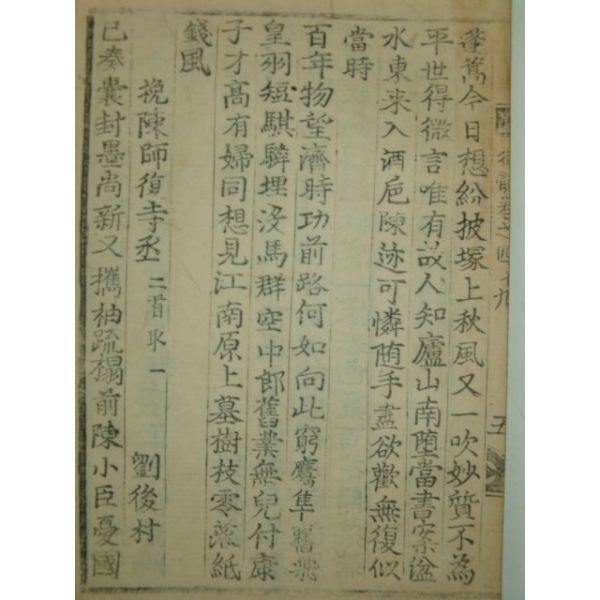 蓬蒿今日想紛披塚上秋風又一吹妙質不為
平世得微言唯有故人知廬山南墮當書案湓
水東来入酒巵陳迹可憐随手盡欲歡無復似
當時
百年物望濟時功前路何如向此窮鷹隼舊飛
皇羽短騏驎埋没馬群空中郎舊業無兒付康
子才高有婦同想見江南原上墓樹枝零落紙
錢風
挽陳師復寺丞 二首取一 劉後村
已奏囊封墨尚新又攜袖疏榻前陳小臣憂國
五